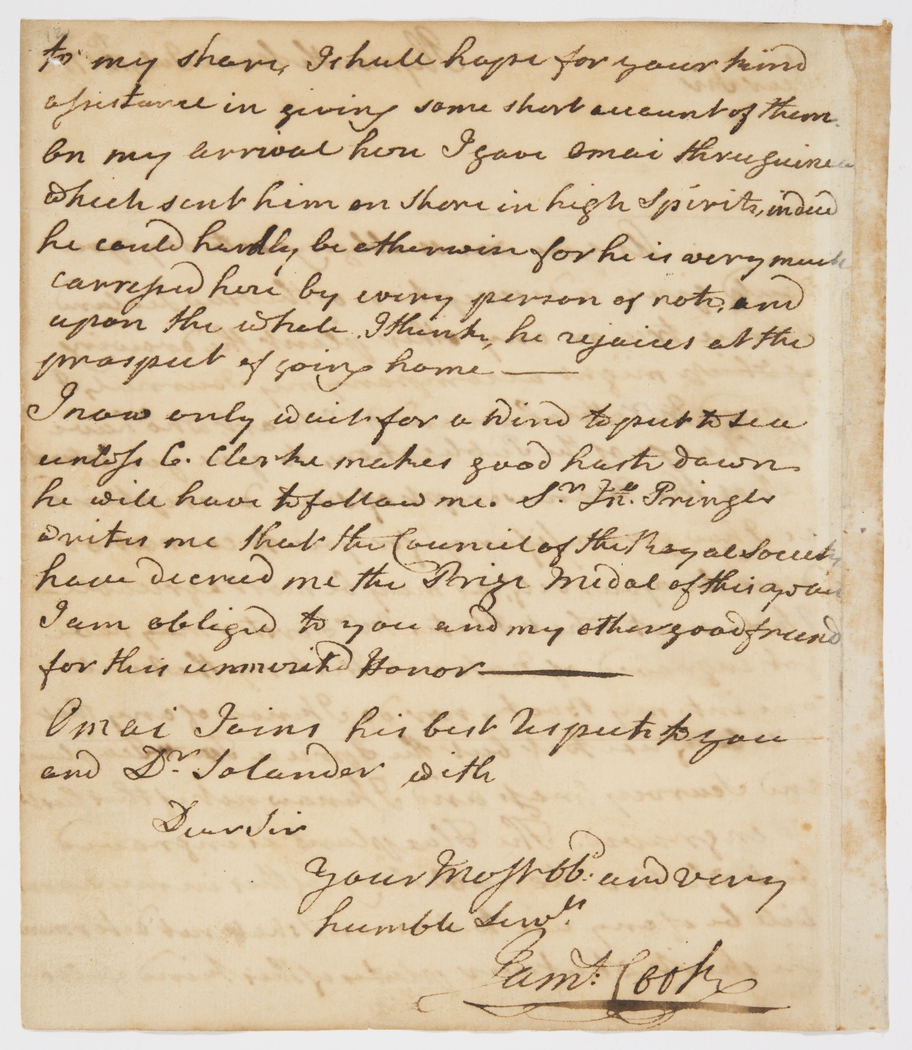 to my share, I shall hope for your kind
assistance in giving some short account of them.
On my arrival here I gave Omai three guineas
which sent him on shore in high Spirits, indeed
he could hardly be otherwise for he is very much
carressed here by every person of note, and
upon the whole, I think, he rejoices at the
prospect of going home —
I now only wait for a Wind to put to sea
unless C. Clerke makes good hast down
he will have to follow me. Sr. Jno. Pringle
writes me that the Council of the Royal Society
have decreed me the Prize Medal of this year
I am obliged to you and my other good friends
for this unmerited Honor —
Omai Joins his best Respects to you
and Dr. Solander with
Dear Sir
Your Most Obt. and very
humble Servt.
Jams. Cook